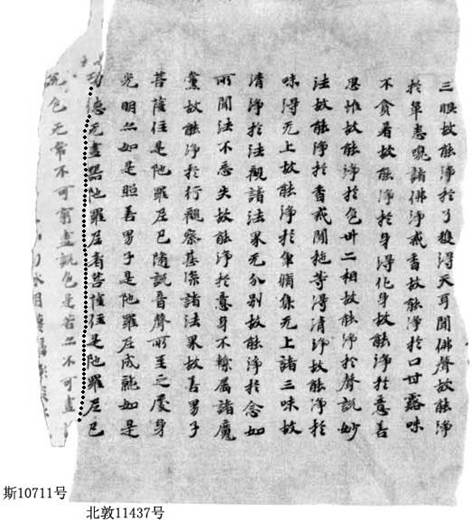 三昧故能淨於耳獲得天耳聞佛聲故能淨
於鼻悉嗅諸佛淨戒香故能淨於口甘露味
不貪着故能淨於身得化身故能淨於意善
思惟故能淨於色卅二相故能淨於聲説妙
法故能淨於香戒聞施等得清淨故能淨於
味得无上故能淨於觸集无上諸三昧故
清淨於法觀諸法界无分别故能淨於念如
所聞法不忘失故能淨於意身不繫屬諸魔
黨故能淨於行觀察甚深諸法界故善男子
菩薩住是陁羅尼已隨説音聲所至之處身
光明亦如是照善男子是陁羅尼成就如是
功德无盡器陁羅尼者菩薩住是陁羅尼已
説色无常不可窮盡説色是苦亦不可盡
斯10711号
北敦11437号